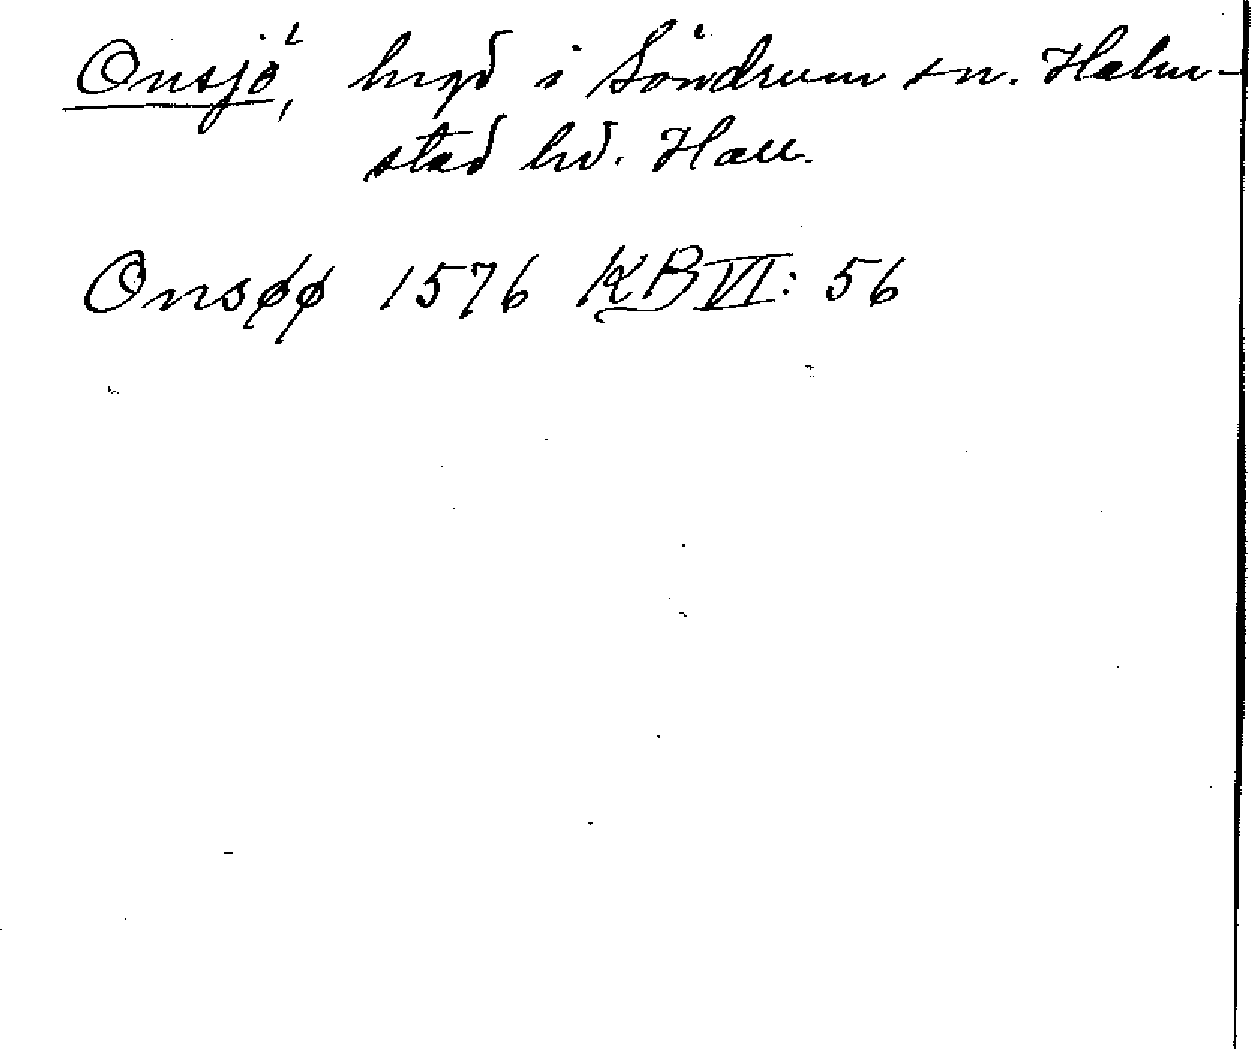 Onsjö, bygd i Söndrum sn. Halm-
stad hd. Hall.
Onsøø 1576 KB VI: 56